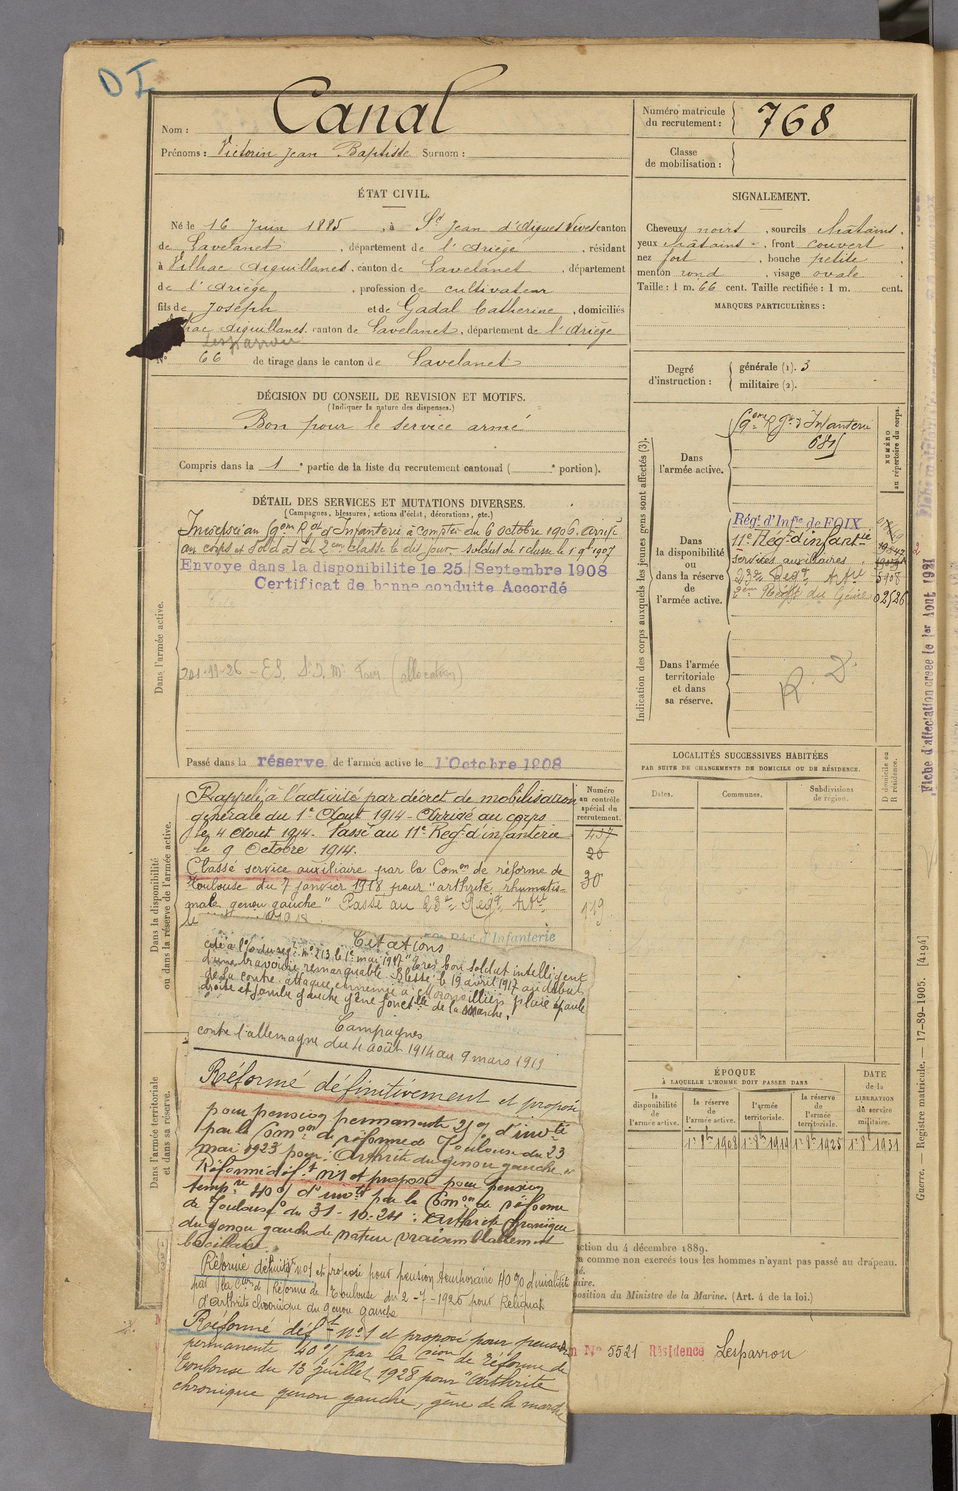 DI
Nom : Canal
Prénoms : Victorin Jean Baptiste Surnom :
Numéro matricule du recrutement : 768
Classe de mobilisation :
ÉTAT CIVIL.
Né le 16 Juin 1885, à St Jean d'Aigues Vives canton
de Lavelanet, département de l'Ariège, résidant
à Vilhac Aiguillanes, canton de Lavelanet, département
de l'Ariège, profession de cultivateur
fils de Joseph et de Gadal Catherine, domiciliés
Aiguillanes, canton de Lavelanet, département de l'Ariège
Lesparrou
N° 66 de tirage dans le canton de Lavelanet
SIGNALEMENT.
Cheveux noirs, sourcils châtains,
yeux châtains, front couvert,
nez fort, bouche petite,
menton rond, visage ovale.
Taille : 1 m. 66 cent. Taille rectifiée : 1 m. cent.
MARQUES PARTICULIÈRES :
Degré d'instruction : générale (1). 3
militaire (2).
DÉCISION DU CONSEIL DE REVISION ET MOTIFS.
(Indiquer la nature des dispenses.)
Bon pour le service armé
Compris dans la 1e partie de la liste du recrutement cantonal ( e portion).
DÉTAIL DES SERVICES ET MUTATIONS DIVERSES.
(Campagnes, blessures, actions d'éclat, décorations, etc.)
Dans l'armée active.
Incorporé au 19eme Rgt d'Infanterie à compter du 6 octobre 1906. Arrivé
au corps et soldat de 2eme classe le dit jour. soldat de 1e classe le 1 9e 1907
Envoye dans la disponibilite le 25 Septembre 1908
Certificat de bonne conduite Accordé
(allocation)
Passé dans la réserve de l'armée active le 1 Octobre 1908
Indication des corps auxquels les jeunes gens sont affectés (3).
Dans l'armée active.
NUMÉRO au répertoire du corps.
Dans la disponibilité ou dans la réserve de l'armée active.
Régt d'Infie de FOIX
11e Régt d'infantie
services auxiliaires
23e Regt Artie
2em Regt du Génie 02526
5908
Dans l'armée territoriale et dans sa réserve.
R. D.
Fiche d'affectation créée le 1er Aout 1931
LOCALITÉS SUCCESSIVES HABITÉES
PAR SUITE DE CHANGEMENTS DE DOMICILE OU DE RÉSIDENCE.
Dates. Communes. Subdivisions de région.
D domicile ou R résidence.
Dans la disponibilité ou dans la réserve de l'armée active.
Numéro au contrôle spécial du recrutement.
437
20
30
119
Rappelé à l'activité par décret de mobilisation
générale du 1e Aout 1914 - Arrivé au corps
le 4 Aout 1914. Passé au 11e Regt d'infanterie
le 9 Octobre 1914.
Classé service auxiliaire par la Comon de réforme de
Toulouse du 7 janvier 1918 pour "arthrite rhumatis-
male genou gauche" Passé au 23e Regt Artie
d'Infanterie
Citations
cité à l'ordre du régt n° 213 le 1er mai 1917 "Très bon soldat intelligent
d'une bravoure remarquable. Blessé le 19 avril 1917 au début
de la contre attaque ennemie à Moronvilliers plaie épaule
droite et jambe gauche gêne fonctlle de la marche.
Campagnes
contre l'allemagne du 4 août 1914 au 9 mars 1919
Dans l'armée territoriale et dans sa réserve.
Réformé définitivement et proposé
pour pension permanente 21% d'invté
par la Comon de réforme de Toulouse du 23
mai 1923 pour : Arthrite du genou gauche
Réformé déft n°1 et proposé pour pension
tempre 40% d'invté par la Comon de réforme
de Toulouse du 31-10-24 : Arthrite chronique
du genou gauche de nature vraisemblablement
bacillaire.
Réformé définitift n°1 et proposé pour pension temporaire 40% d'invalidité
par la Con de Réforme de Toulouse du 2-7-1926 pour Reliquat
d'arthrite chronique du genou gauche
Réformé déft n°1 et proposé pour pension
permanente 40% par la con de Réforme de
Toulouse du 13 juillet 1928 pour "Arthrite
chronique genou gauche, gêne de la marche
ÉPOQUE
À LAQUELLE L'HOMME DOIT PASSER DANS
la disponibilité de l'armée active. la réserve de l'armée active. l'armée territoriale. la réserve de l'armée territoriale.
DATE de la LIBÉRATION du service militaire.
ction du 4 décembre 1889.
comme non exercés tous les hommes n'ayant pas passé au drapeau.
position du Ministre de la Marine. (Art. 4 de la loi.)
N° 5521 Résidence Lesparrou
Guerre. — Registre matricule. — 17-89-1905. [4194]